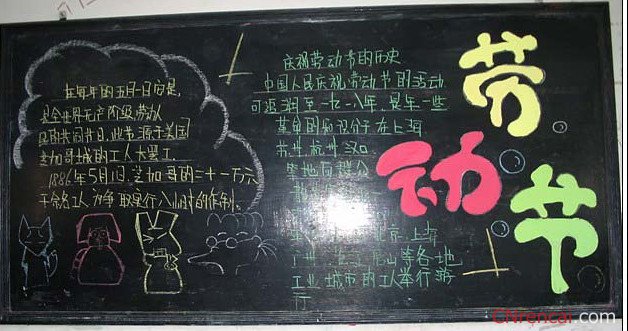 在每年的五月一日它是,
是全世界无产阶级,劳动人
民的共同节日,此节源于美国
芝加哥城的工人大罢工.
1886年5月1日,芝加哥的二十一万六
千余名工人为争取实行八小时的工作制。
庆祝劳动节的历史
中国人民庆祝劳动节的活动
可追溯至一九一八年,是年一些
革命的知识分子在上海
苏州.杭州.汉口
等地向群众
北京.上海
广州 山等各地
工业城市的工人举行游
行
劳
动
节
cnrencai.com